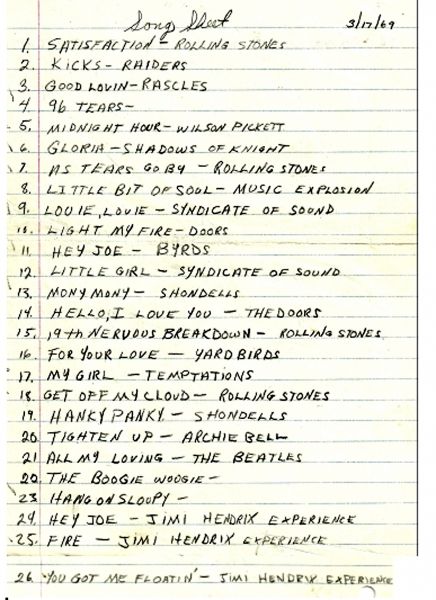 Song Sheet 3/17/69
1. SATISFACTION - ROLLING STONES
2. KICKS - RAIDERS
3. GOOD LOVIN - RASCLES
4 96 TEARS -
5. MIDNIGHT HOUR - WILSON PICKETT
6. GLORIA - SHADOWS OF KNIGHT
7. AS TEARS GO BY - ROLLING STONES
8. LITTLE BIT OF SOUL - MUSIC EXPLOSION
9. LOUIE, LOUIE - SYNDICATE OF SOUND
10. LIGHT MY FIRE - DOORS
11. HEY JOE - BYRDS
12. LITTLE GIRL - SYNDICATE OF SOUND
13. MONY MONY - SHONDELLS
14. HELLO, I LOVE YOU - THE DOORS
15. 19th NERVOUS BREAKDOWN - ROLLING STONES
16. FOR YOUR LOVE - YARD BIRDS
17. MY GIRL - TEMPTATIONS
18. GET OFF MY CLOUD - ROLLING STONES
19. HANKY PANKY - SHONDELLS
20. TIGHTEN UP - ARCHIE BELL
21 ALL MY LOVING - THE BEATLES
22. THE BOOGIE WOOGIE -
23. HANG ON SLOOPY -
24. HEY JOE - JIMI HENDRIX EXPERIENCE
25. FIRE - JIMI HENDRIX EXPERIENCE
26. 'YOU GOT ME FLOATIN' - JIMI HENDRIX EXPERIENCE